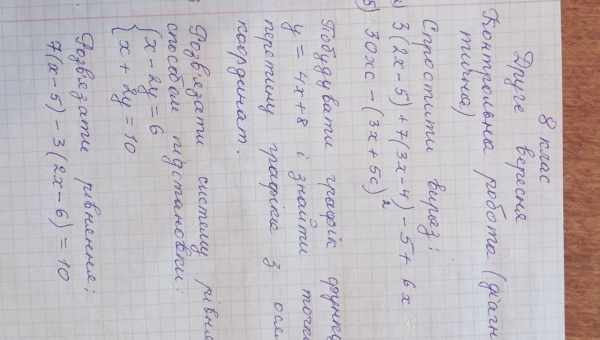 8 клас
Друге вересня
Контрольна робота (діагн
тична)
Спростити вираз:
3(2x-5)+7(3x-4)-5+6x
5) 30xc-(3x+5c)²
Побудувати графік функц
y = 4x+8 і знайти точки
перетину графіка з осям
координат.
Розв'язати систему рівня
способом підстановки:
{x-2y=6
x+2y=10
Розв'язати рівняння:
7(x-5)-3(2x-6)=10